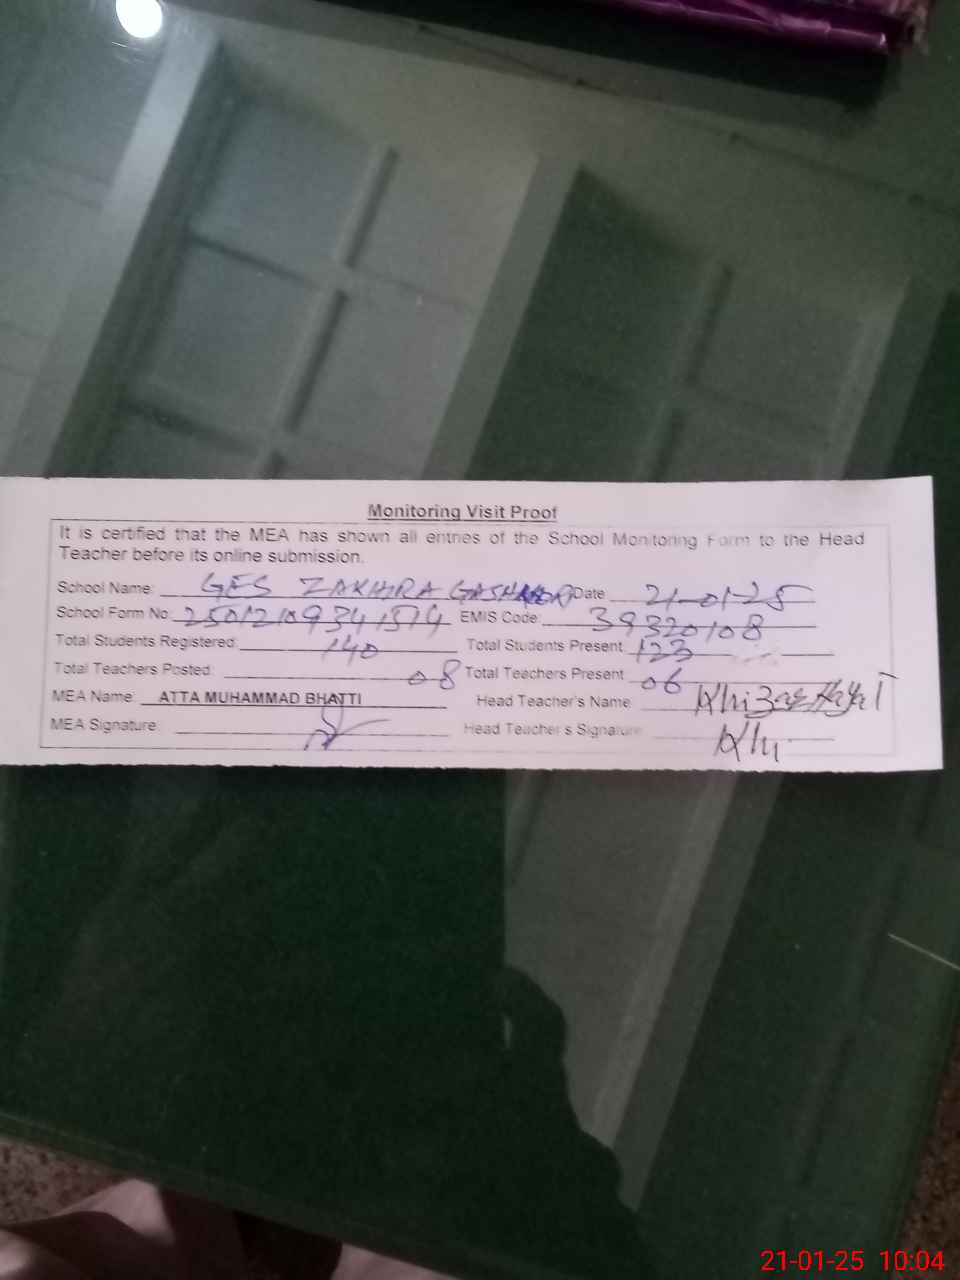 Monitoring Visit Proof
It is certified that the MEA has shown all entries of the School Monitoring Form to the Head
Teacher before its online submission.
School Name: GES ZAKHIRA Date 21-01-25
School Form No: 25012109341514 EMIS Code: 39320108
Total Students Registered: 140 Total Students Present: 123
Total Teachers Posted: 08 Total Teachers Present 06
MEA Name: ATTA MUHAMMAD BHATTI Head Teacher's Name Khizar Hayat
MEA Signature: Head Teacher's Signature Khi
21-01-25 10:04